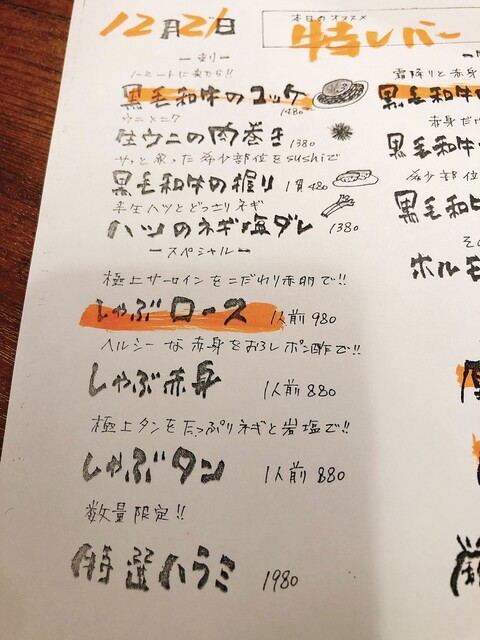 12月21日
本日のオススメ
特レバー
ー刺りー
ノーミートに来たら!!
黒毛和牛のユッケ
1480
ウニ×ニク
生ウニの肉巻き 1380
サッと炙った希少部位をsushiで
黒毛和牛の握り 1貫480
半生ハツとどっさりネギ
ハツのネギ塩ダレ 1380
ースペシャルー
極上サーロインをこだわり赤卵で!!
しゃぶロース 1人前 980
ヘルシーな赤身をおろしポン酢で!!
しゃぶ赤身 1人前 880
極上タンをたっぷりネギと岩塩で!!
しゃぶタン 1人前 880
数量限定!!
特選ハラミ 1980
霜降りと赤身
黒毛和牛の
赤身だけ
黒毛和牛
希少部位
黒毛和
ホルモ